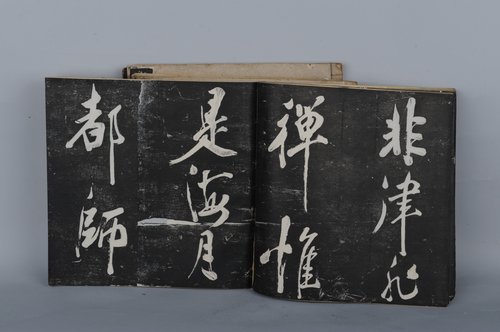 非律非
禅惟
是海月
都師